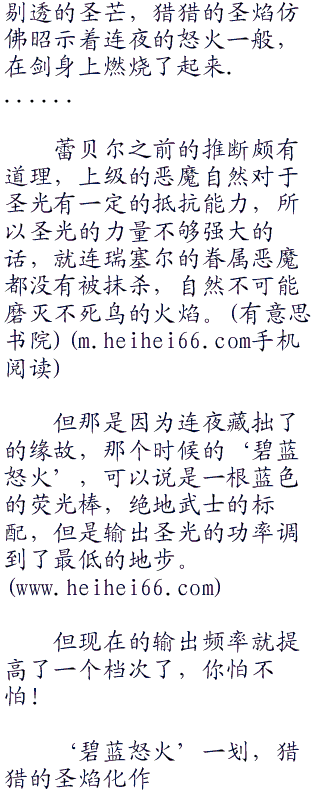 剔透的圣芒，猎猎的圣焰仿
佛昭示着连夜的怒火一般，
在剑身上燃烧了起来.
......
蕾贝尔之前的推断颇有
道理，上级的恶魔自然对于
圣光有一定的抵抗能力，所
以圣光的力量不够强大的
话，就连瑞塞尔的眷属恶魔
都没有被抹杀，自然不可能
磨灭不死鸟的火焰。(有意思
书院)(m.heihei66.com手机
阅读)
但那是因为连夜藏拙了
的缘故，那个时候的‘碧蓝
怒火’，可以说是一根蓝色
的荧光棒，绝地武士的标
配，但是输出圣光的功率调
到了最低的地步。
(www.heihei66.com)
但现在的输出频率就提
高了一个档次了，你怕不
怕!
‘碧蓝怒火’一划，猎
猎的圣焰化作